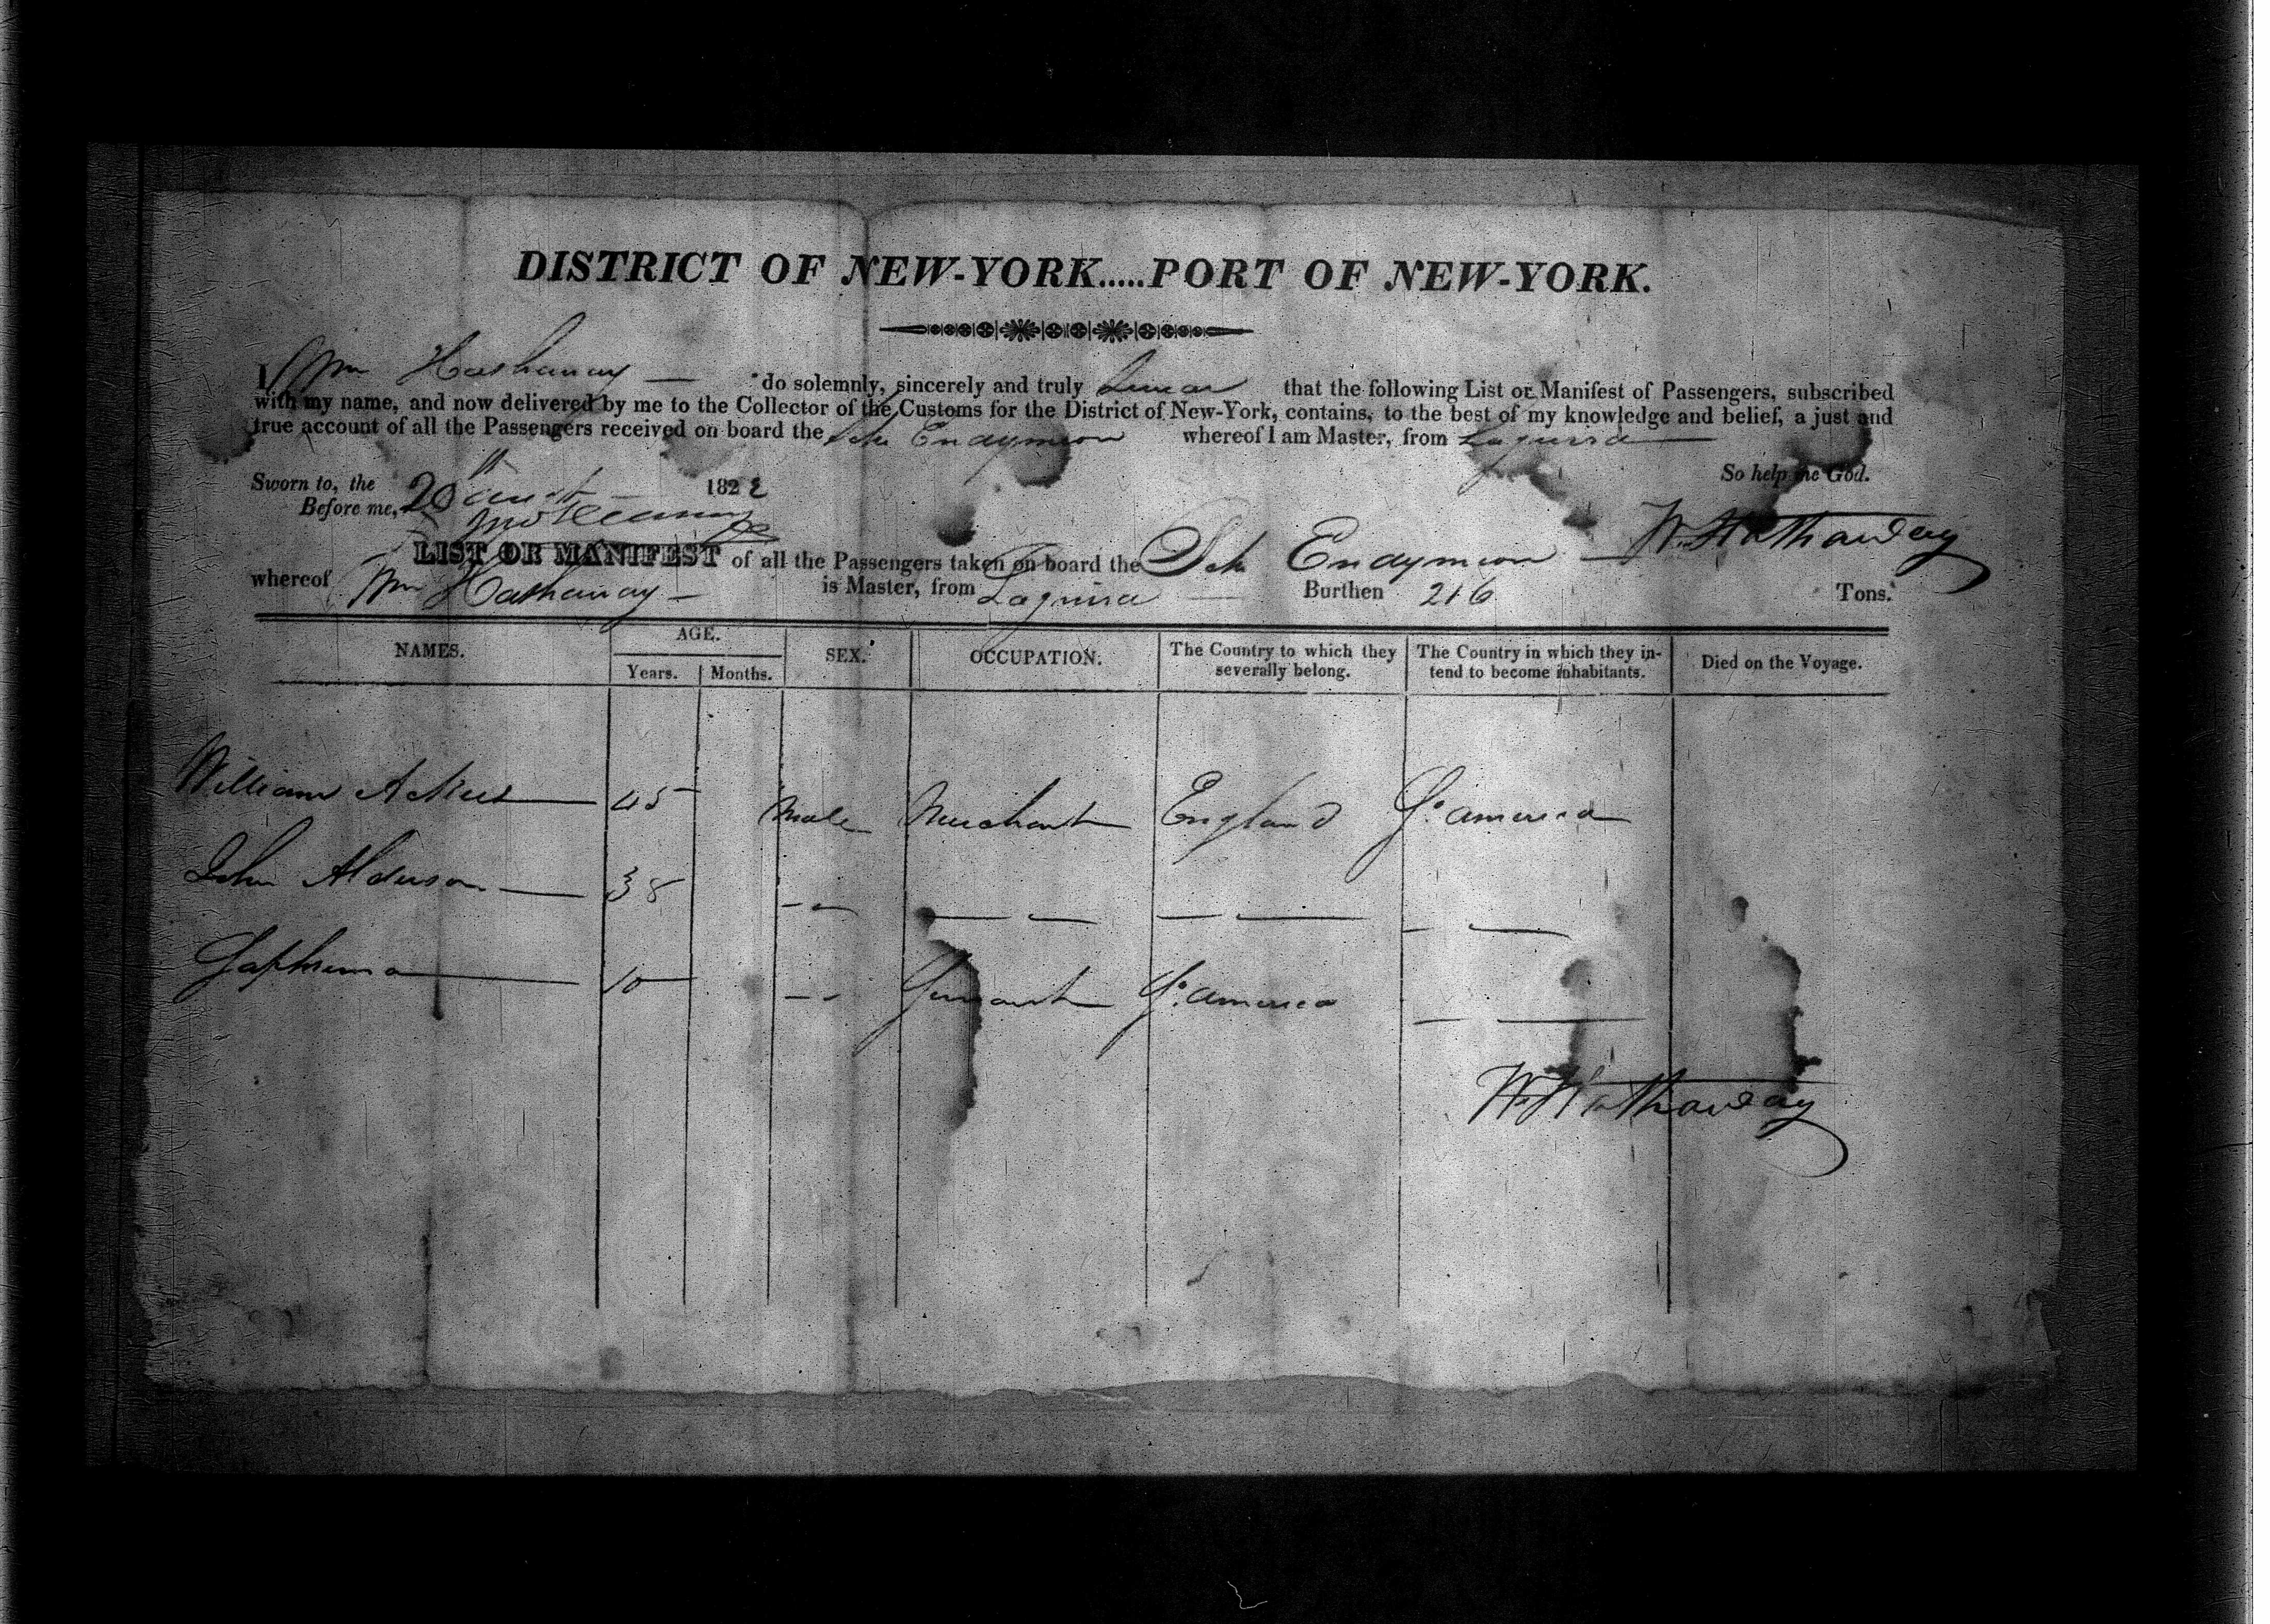 DISTRICT OF NEW-YORK.....PORT OF NEW-YORK.
I Wm Hathaway — do solemnly, sincerely and truly Swear that the following List or Manifest of Passengers, subscribed
with my name, and now delivered by me to the Collector of the Customs for the District of New-York, contains, to the best of my knowledge and belief, a just and
true account of all the Passengers received on board the Sch Endymion whereof I am Master, from Laguira —
So help me God.
Sworn to, the 20th augt — 1822
Before me,
W. Hathaway
LIST OR MANIFEST of all the Passengers taken on board the Sch Endymion —
whereof Wm Hathaway — is Master, from Laguira — Burthen 216 Tons.
NAMES. AGE. SEX. OCCUPATION. The Country to which they severally belong. The Country in which they intend to become inhabitants. Died on the Voyage.
Years. Months.
William — 45 Male Merchant England So. america
John Alderson — 38 - - — — — — — —
— 10 - - Servant So. america — —
W. Hathaway